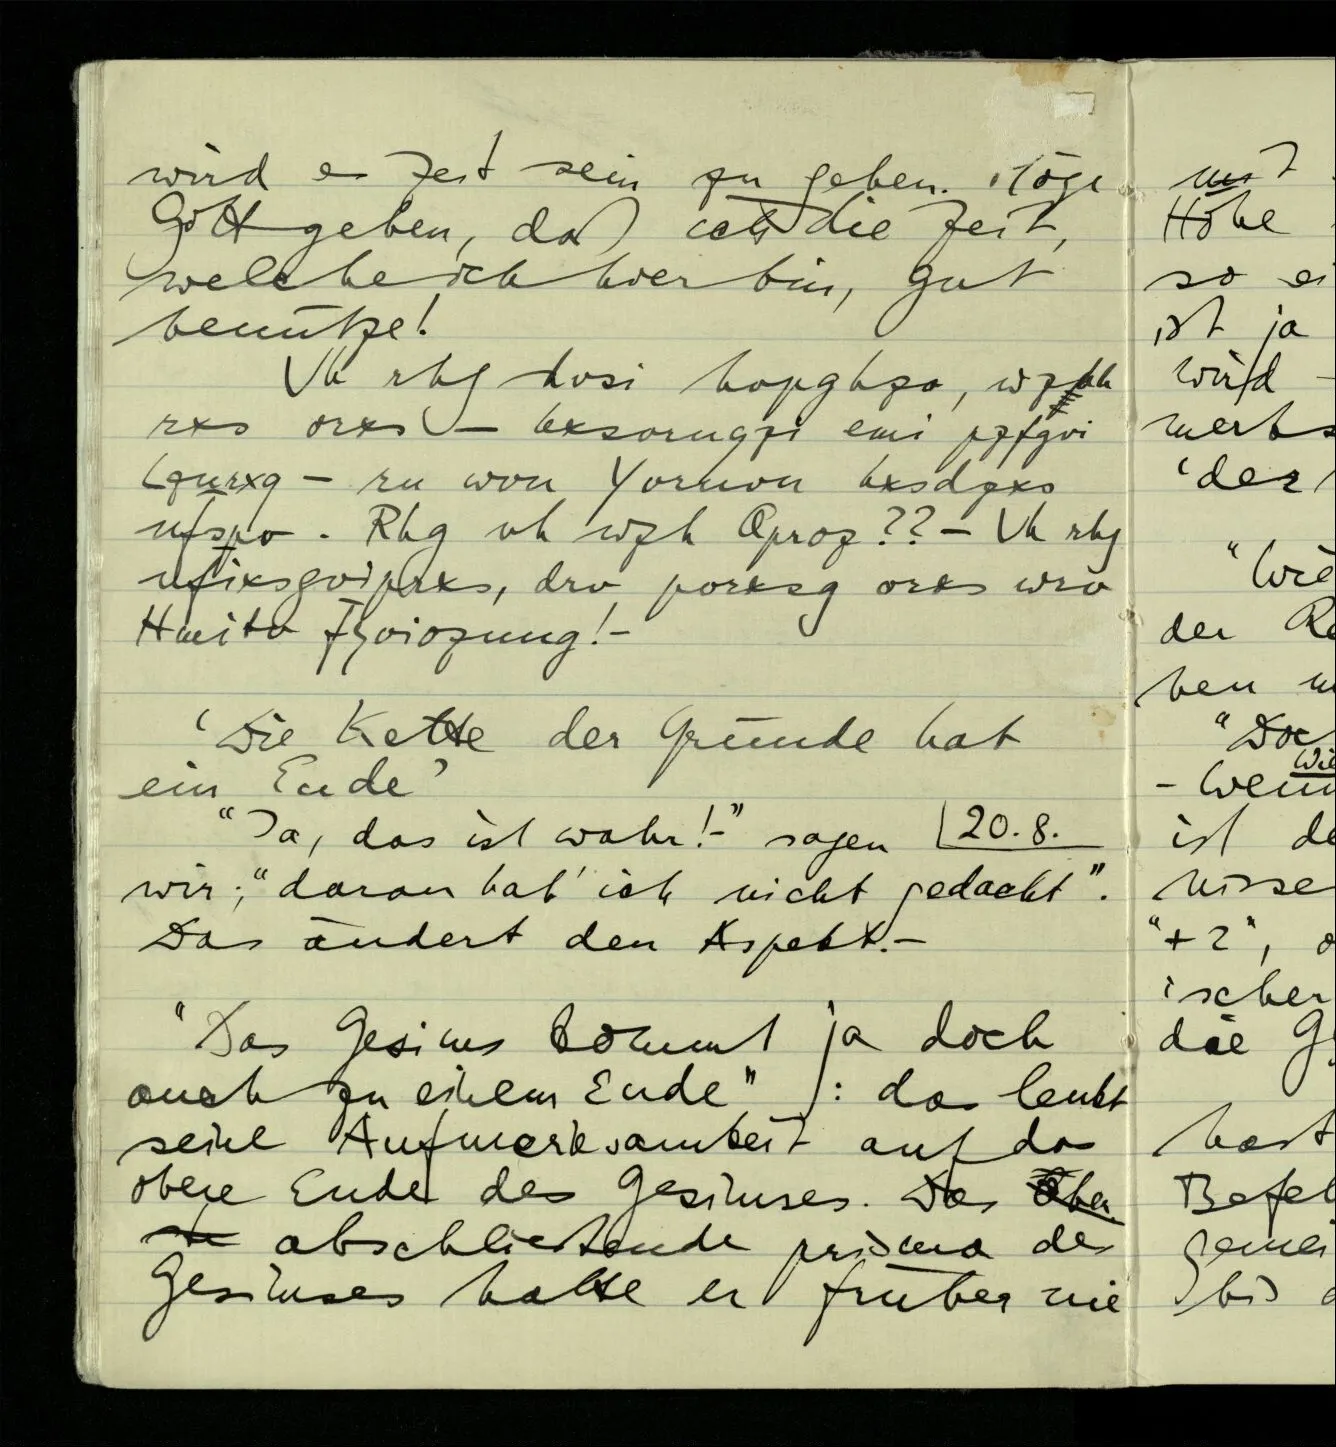 wird es Zeit sein zu gehen. Möge
Gott geben, daß ich die Zeit,
welche ich hier bin, gut
benütze!
Vh rhg dvsi hopghzo, wzhh
rxs orxs – hxsorugzi emi
– ru wvn Yorwvn hxsdzxs
nfspo. Rhg vh wzh Oproz?? – Vh rhg
nfixsgviprxs, drv porxsg orxs wrv
‘Die Kette der Gründe hat
ein Ende’
“Ja, das ist wahr!–” sagen
20. 8.
wir; “daran hab' ich nicht gedacht”.
Das ändert den Aspekt.–
“Das Gesims kommt ja doch
auch zu einem Ende”: das lenkt
seine Aufmerksamkeit auf das
obere Ende des Gesimses. Das Obers
te abschließende prisma des
Gesimses hatte er früher nie
mit
Höhe
so ei
ist ja
wird
merks
‘der
“Wie
der Re
ben
“Doc
Wie
– Wenn
ist de
nisse
“+2”,
ischer
die
hast
Befel
gemei
bis